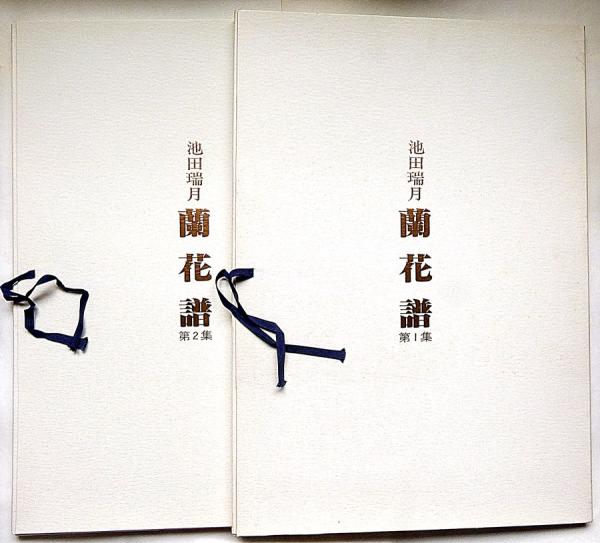 池田瑞月
蘭花譜
第2集
池田瑞月
蘭花譜
第1集